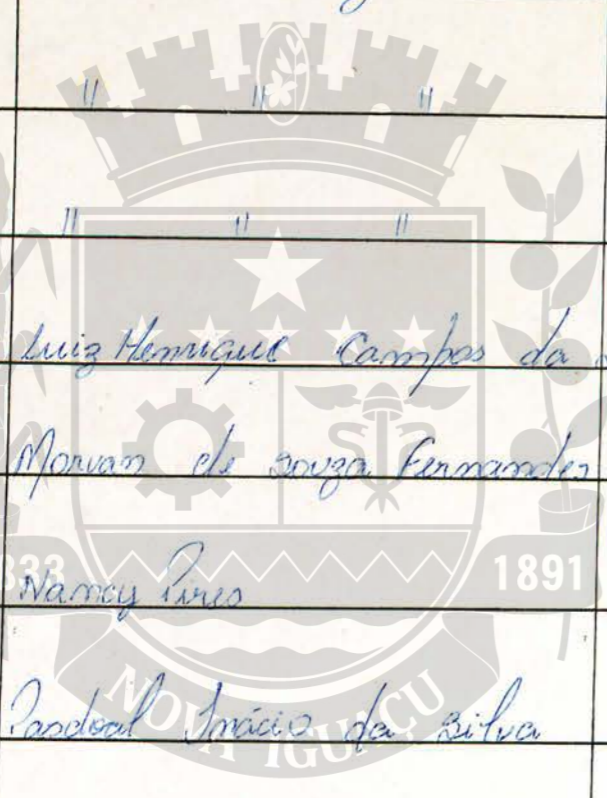 " " "
" " "
Luiz Henrique Campos da
Morvan de Souza Fernandes
Nancy Pires
Pascoal Inácio da Silva
1891
NOVA IGUAÇU